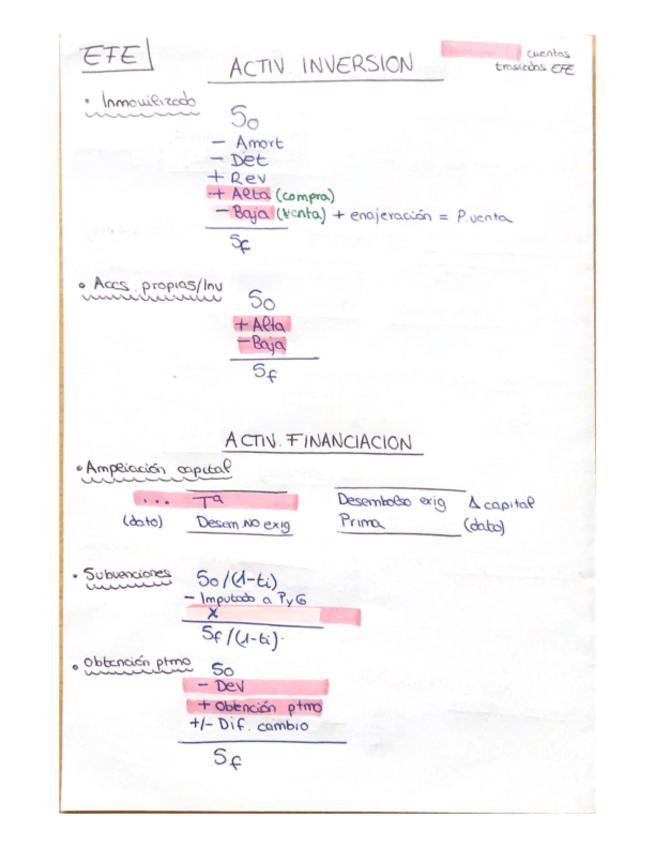 EFE
ACTIV. INVERSION
cuentas
traslados EFE
• Inmovilizado
So
- Amort
- Det
+ Rev
+ Alta (compra)
- Baja (venta) + enajeración = P.venta
Sf
• Accs. propias/Inv
So
+ Alta
- Baja
Sf
ACTIV. FINANCIACION
• Ampliación capital
... Tª Desembolso exig Δ capital
(dato) Desem NO exig Prima (dato)
• Subvenciones So/(1-ti)
- Imputado a PyG
X
Sf/(1-ti).
• Obtención ptmo So
- Dev
+ Obtención ptmo
+/- Dif. cambio
Sf